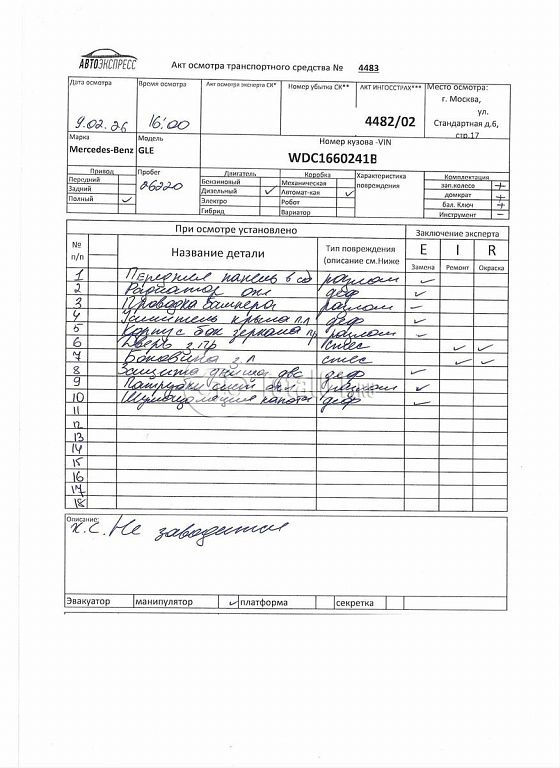 АВТОЭКСПРЕСС
Акт осмотра транспортного средства № 4483
Дата осмотра
9.02.26
Время осмотра
16:00
Акт осмотра эксперта СК*
Номер убытка СК**
АКТ ИНГОССТРАХ***
4482/02
Место осмотра:
г. Москва,
ул.
Стандартная д.6,
стр.17
Марка
Mercedes-Benz
Модель
GLE
Номер кузова -VIN
WDC1660241B
Привод
Передний
Задний
Полный ✓
Пробег
Двигатель
Бензиновый
Дизельный ✓
Электро
Гибрид
Коробка
Механическая
Автомат-кая ✓
Робот
Вариатор
Характеристика
повреждения
Комплектация
зап.колесо +
домкрат +
бал. Ключ +
Инструмент –
При осмотре установлено
Заключение эксперта
№
п/п
Название детали
Тип повреждения
(описание см.Ниже
E I R
Замена Ремонт Окраска
1 Передняя панель в сб разлом ✓
2 Радиатор деф ✓
3 Проводка бампера разлом ✓
4 Усилитель крыла п.л деф ✓
5 Корпус бок зеркала пр разлом ✓
6 Дверь з.пр ✓ ✓
7 Боковина з.л ✓ ✓
8 Защита двс деф ✓
9 Патрубки ✓
10 Шумоизоляция капота деф ✓
11
12
13
14
15
16
17
18
Описание:
Х.С. Не заводится
Эвакуатор манипулятор ✓ платформа секретка